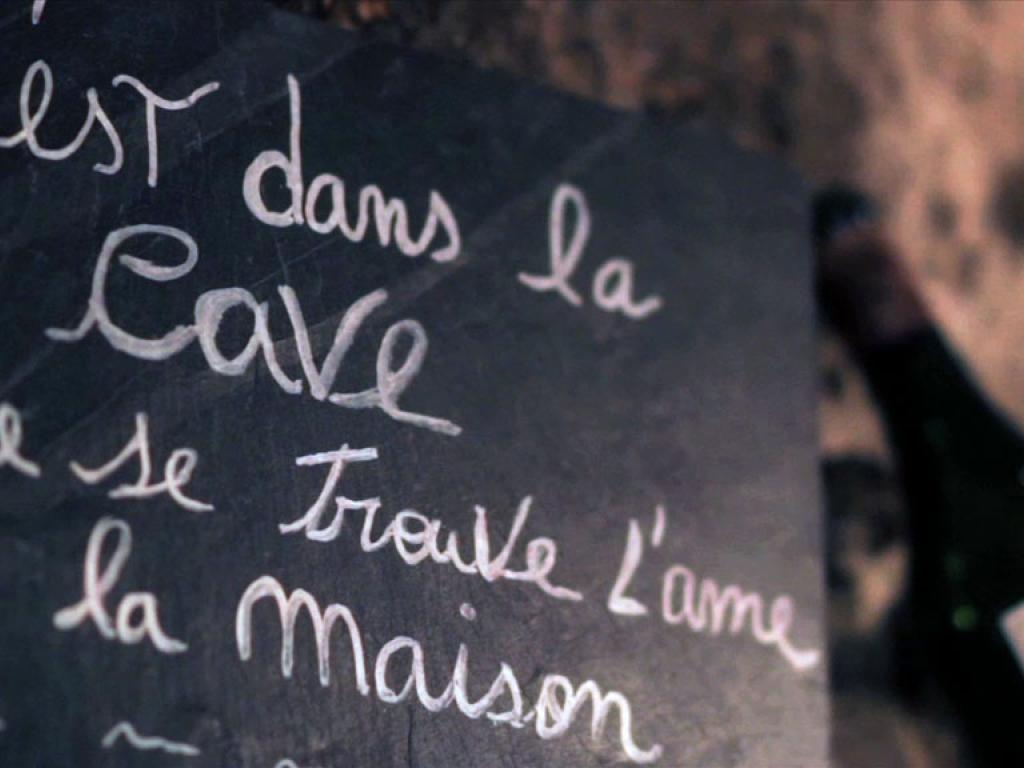 est dans la
Cave
se trouve l'ame
la maison